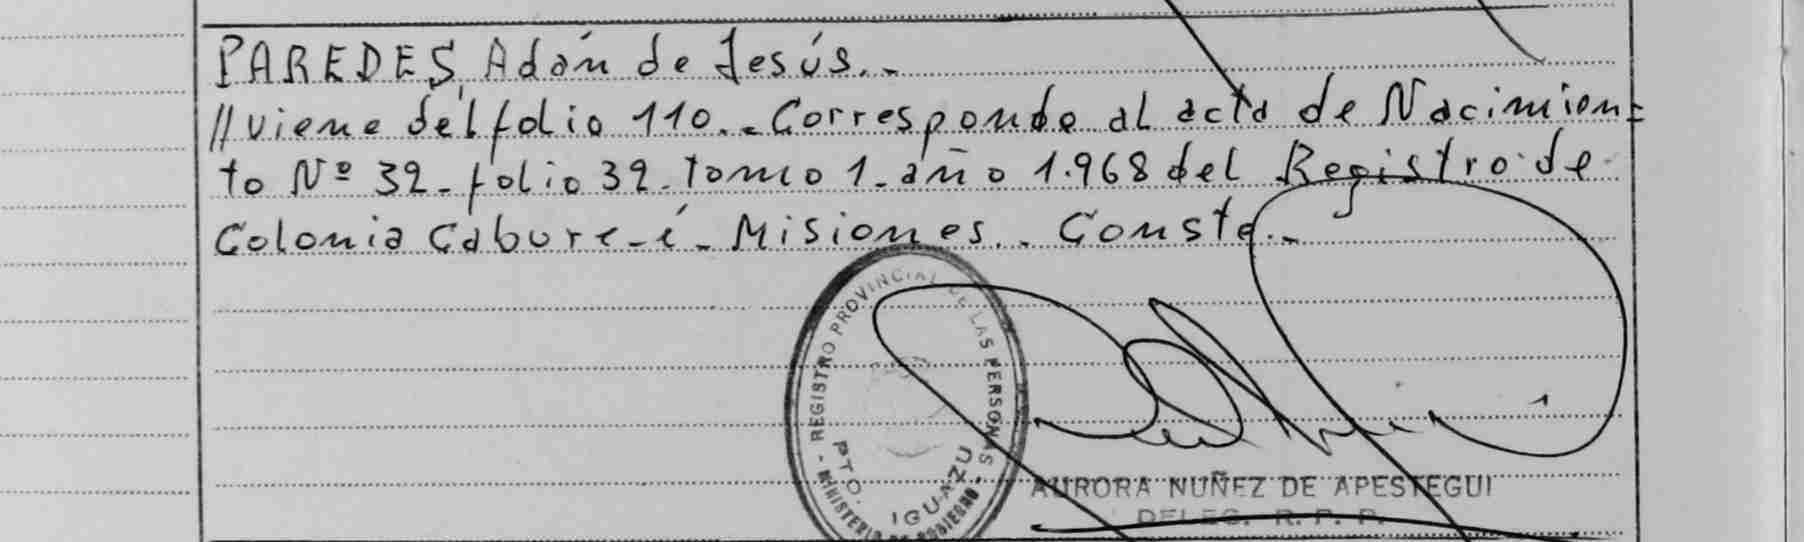 PAREDES, Adán de Jesús.-
//viene del folio 110.- Corresponde al acta de Nacimien=
to Nº 32- folio 32- tomo 1- año 1.968 del Registro de
Colonia Cabure-í- Misiones.- Conste.-
- REGISTRO PROVINCIAL DE LAS PERSONAS -
MINISTERIO DE GOBIERNO
PTO. IGUAZU
AURORA NUÑEZ DE APESTEGUI
DELEG. R. P. P.